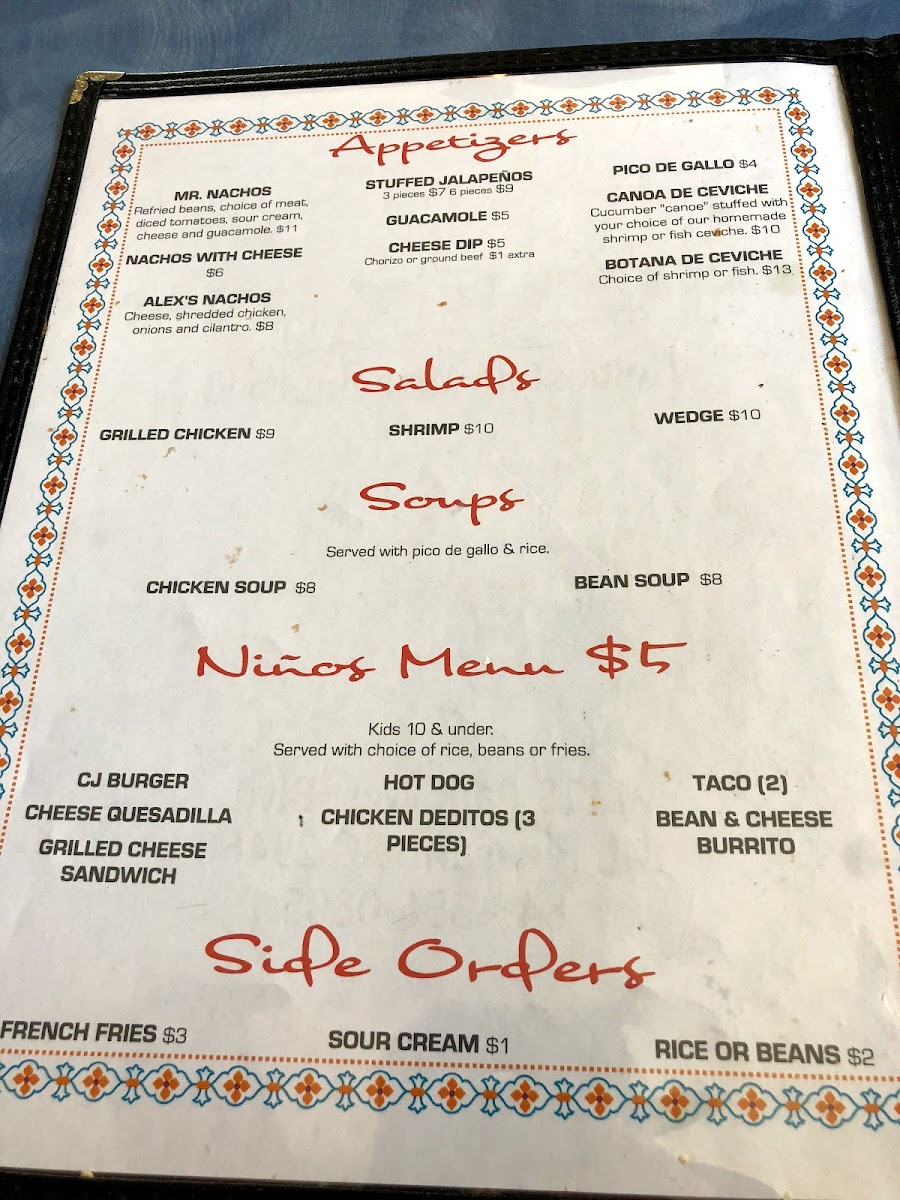 Appetizers
MR. NACHOS
Refried beans, choice of meat,
diced tomatoes, sour cream,
cheese and guacamole. $11
NACHOS WITH CHEESE
$6
ALEX'S NACHOS
Cheese, shredded chicken,
onions and cilantro. $8
STUFFED JALAPEÑOS
3 pieces $7 6 pieces $9
GUACAMOLE $5
CHEESE DIP $5
Chorizo or ground beef $1 extra
PICO DE GALLO $4
CANOA DE CEVICHE
Cucumber "canoe" stuffed with
your choice of our homemade
shrimp or fish ceviche. $10
BOTANA DE CEVICHE
Choice of shrimp or fish. $13
Salads
GRILLED CHICKEN $9
SHRIMP $10
WEDGE $10
Soups
Served with pico de gallo & rice.
CHICKEN SOUP $8
BEAN SOUP $8
Niños Menu $5
Kids 10 & under.
Served with choice of rice, beans or fries.
CJ BURGER
CHEESE QUESADILLA
GRILLED CHEESE
SANDWICH
HOT DOG
CHICKEN DEDITOS (3
PIECES)
TACO (2)
BEAN & CHEESE
BURRITO
Side Orders
FRENCH FRIES $3
SOUR CREAM $1
RICE OR BEANS $2